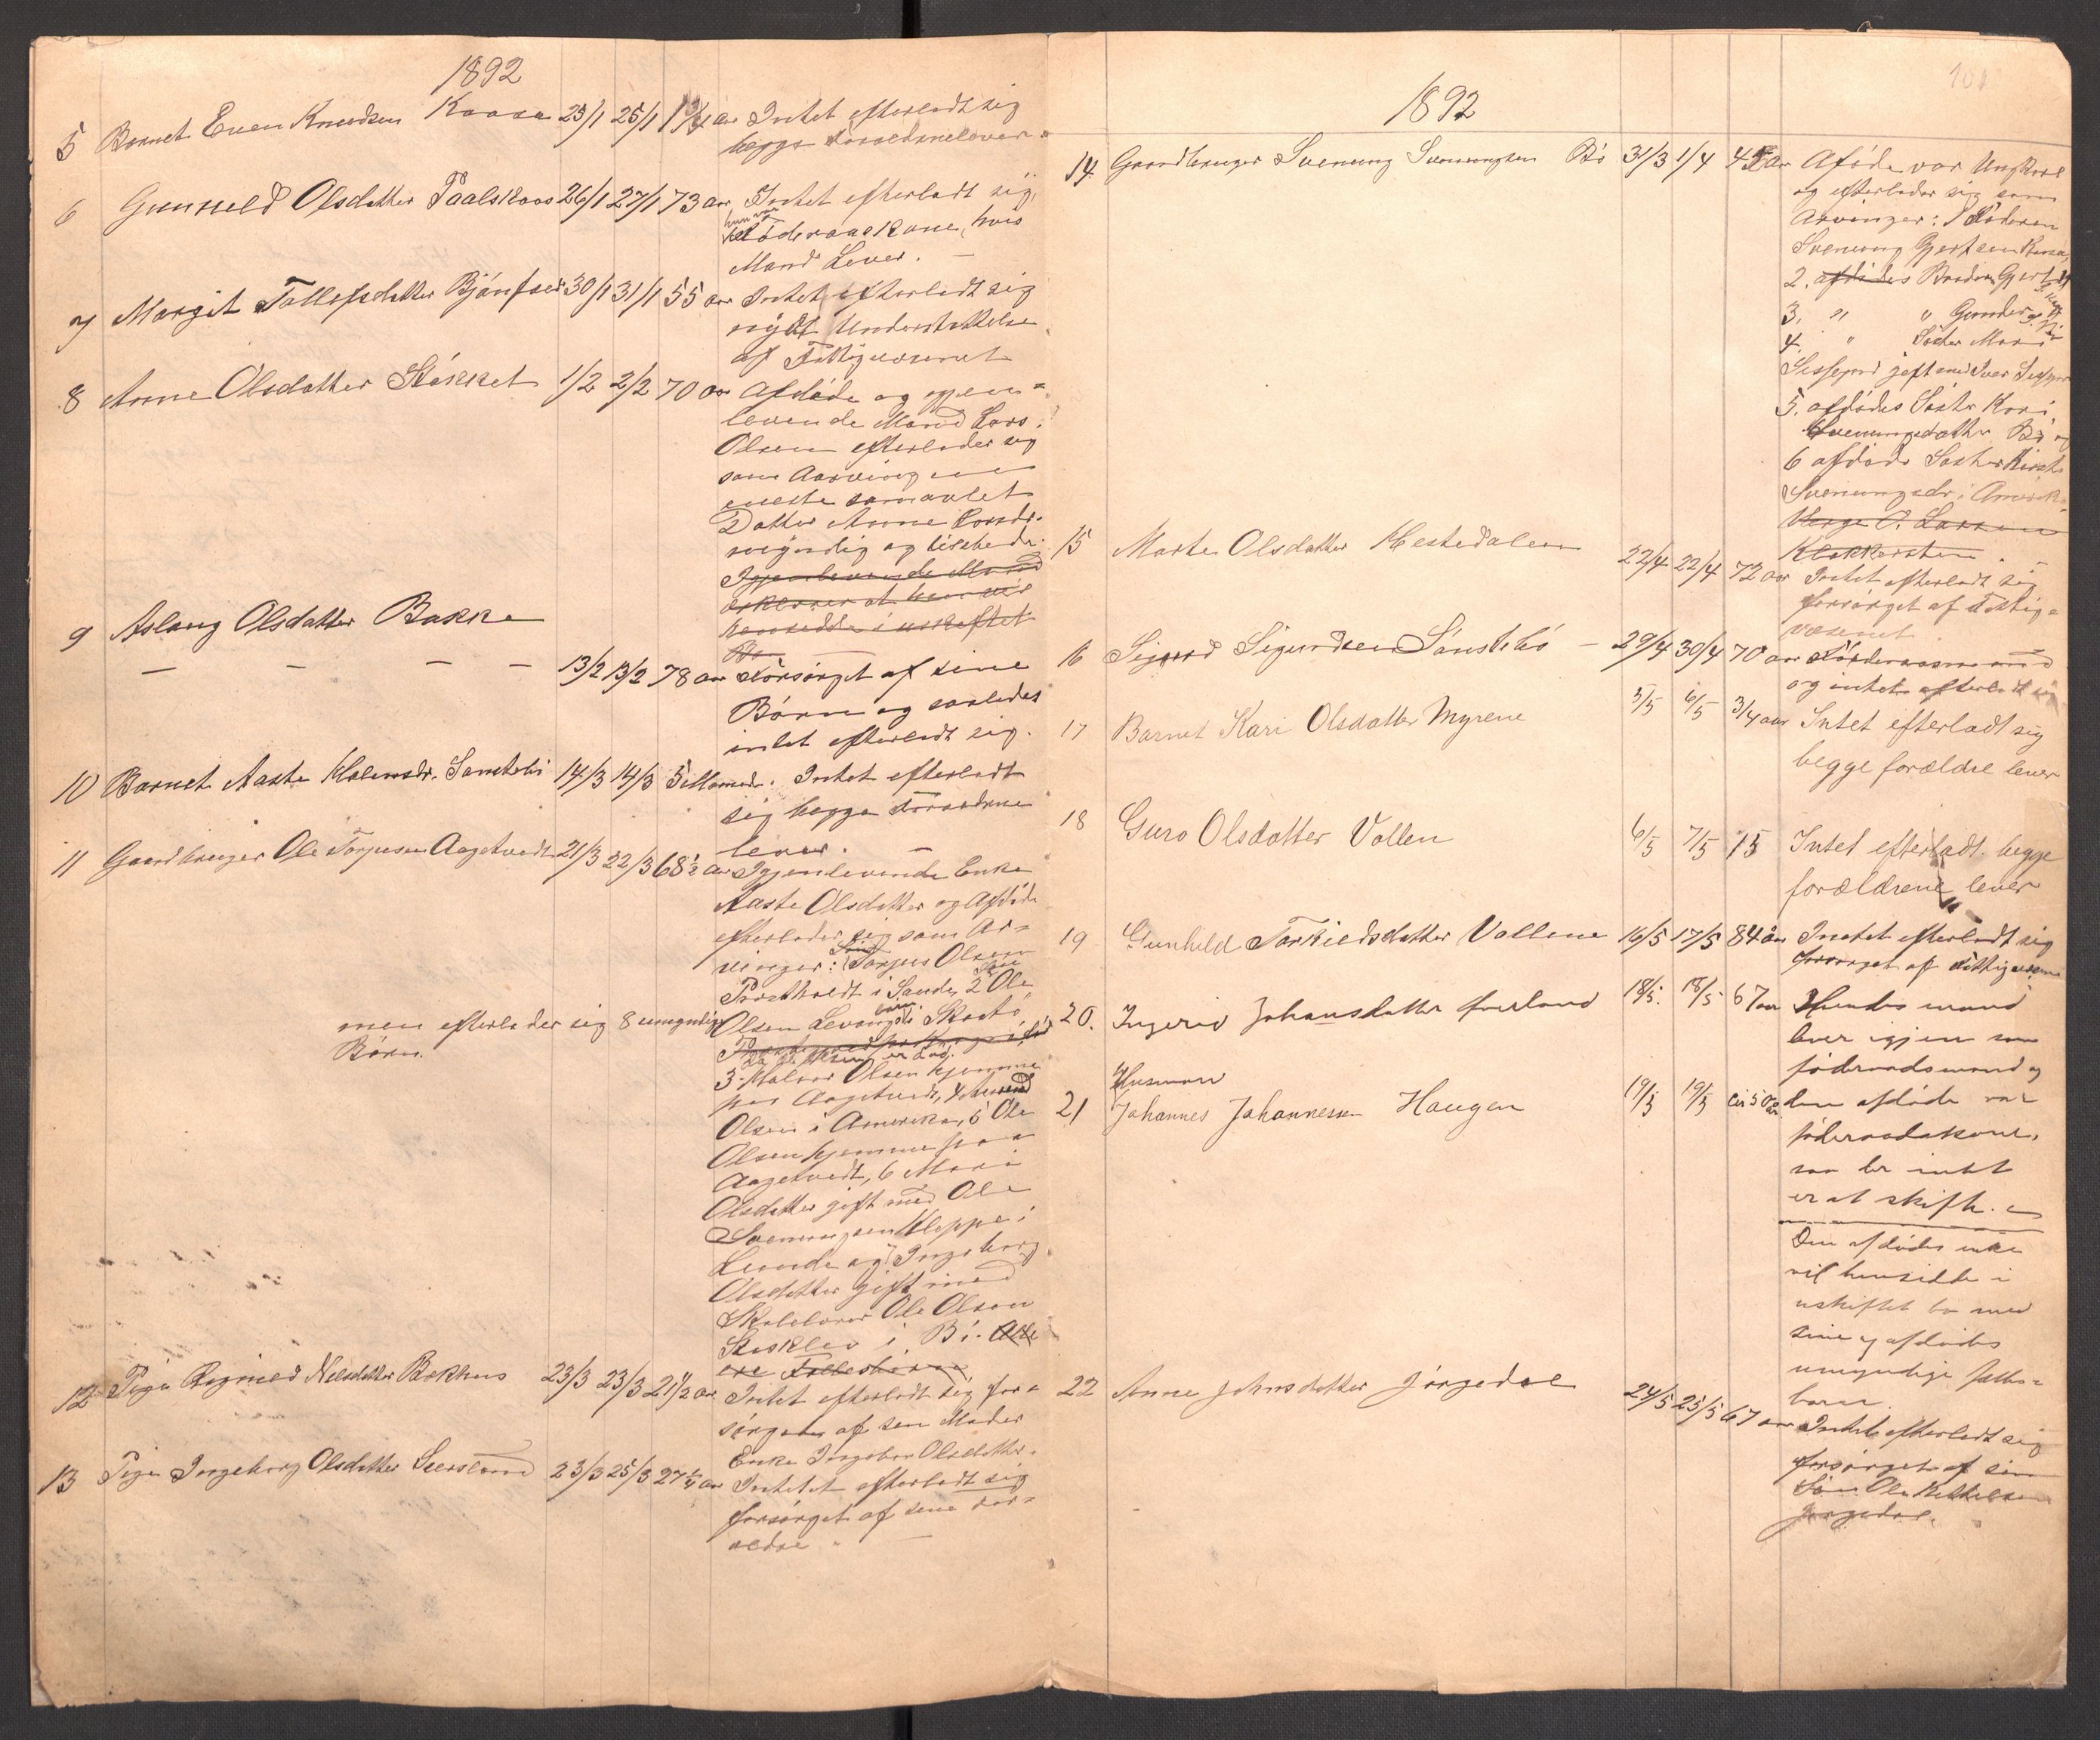 1892
5 Barnet Even Knudsen Kaasa 23/1 25/1 1 3/4 aar Intet efterladt sig
begge Forældrene lever
6 Gunneld Olsdatter Paalskaas 26/1 27/1 73 aar Intet efterladt sig,
hun var
Föderaadskone, hvis
Mand Lever. —
7 Margit Tollefsdatter Björnfoed 30/1 31/1 55 aar Intet efterladt sig
nydt Understöttelse
af Fattigvæsenet
8 Anne Olsdatter Stökket 1/2 2/2 70 aar Afdöde og gjen=
levende Mand Lars
Olsen efterlader sig
som Aarving en
eneste samavlet
Datter Anne Larsdr.
myndig og tilstede.
Igjenlevende Mand
erklærer at han vil
hensidde i uskiftet
Bo
9 Aslaug Olsdatter Bakke
— — — — 13/2 13/2 78 aar Forsörget af sine
Börn og saaledes
intet efterladt sig.
10 Barnet Aaste Halvorsdr. Sanstebö 14/3 14/3 5 Maaneder. Intet efterladt
sig begge Forældrene
lever. —
11 Gaardbruger Ole Torjusen Aagetvedt 21/3 22/3 68 1/2 aar Igjenlevende Enke
Aaste Olsdatter og Afdöde
efterlader sig som Ar=
vinger: Torjus Olsen
Prestholdt i Saude, 2 Ole
Olsen Levangs Skaatö,
men efterlader sig 8 umyndige
Börn.
3 Halvor Olsen hjemme
paa Aagetvedt, 4
Olsen i Amerika, 5 Ole
Olsen hjemme paa
Aagetvedt, 6 Mari
Olsdatter gift med Ole
Svenungsen Kleppe i
Lunde og Ingeborg
Olsdatter gift med
Skolelærer Ole Olsen
Stosklev i Bö. Alle
ere Fællesbörn
12 Pige Ragnild Nilsdatter Bakhus 23/3 23/3 21 1/2 aar Intet efterladt sig for=
sörgedes af sin Moder
Enke Ingebor Olsdatter.
13 Pige Ingeborg Olsdatter Seersland 23/3 25/3 27 1/4 aar Intetet efterladt sig
forsörget af sine For=
ældre —
1892
101
14 Gaardbruger Svenung Svenungsen Bö 31/3 1/4 45 aar Aföde var Ungkarl
og efterlader sig som
Arvinger: 1 Faderen
Svenung Gjertsen Kaasa,
2. afdödes Broder Gjert
3. " " Gunder
4. " Söster Mari
Sisjord gift med Iver Sisjord
5. afdödes Söster Kari
Svenungsdatter Bö og
6 afdöde Söster Kirsti
Svenungsdr. i Amerika,
Verge O. Larsen
Klokkersten.
15 Marte Olsdatter Hestedalen 22/4 22/4 72 aar Intet efterladt sig
forsörget af Fattig=
væsenet
16 Sigurd Sigurdsen Sönstebö — 29/4 30/4 70 aar Föderaasmand
og intet efterladt sig
17 Barnet Kari Olsdatter Myrene 5/5 6/5 3/4 aar Intet efterladt sig
begge forældre lever
18 Guro Olsdatter Vollen 6/5 7/5 15 Intet efterladt. begge
forældrene lever
19 Gunhild Tarkieldsdatter Vollene 16/5 17/5 84 aar Intet efterladt sig
forsorget af Fattigvæsenet
20. Ingerid Johansdatter Fuerland 18/5. 18/5 67 aar Hendes mand
lever igjen som
föderaadsmand og
Husmand
21 Johannes Johannesen Haugen 19/5 19/5 cir 50 aar den afdöde var
föderaadskone,
saa her intet
er at skifte.
Den afdödes enke
vil hensidde i
uskiftet bo med
sine og afdödes
umyndige fælles=
barn.
22 Anne Johnsdatter Jörgedal 24/5 25/5 67 aar Intet efterladt sig
forsörget af sin
Sön Ole Kittilsen
Jörgedal.